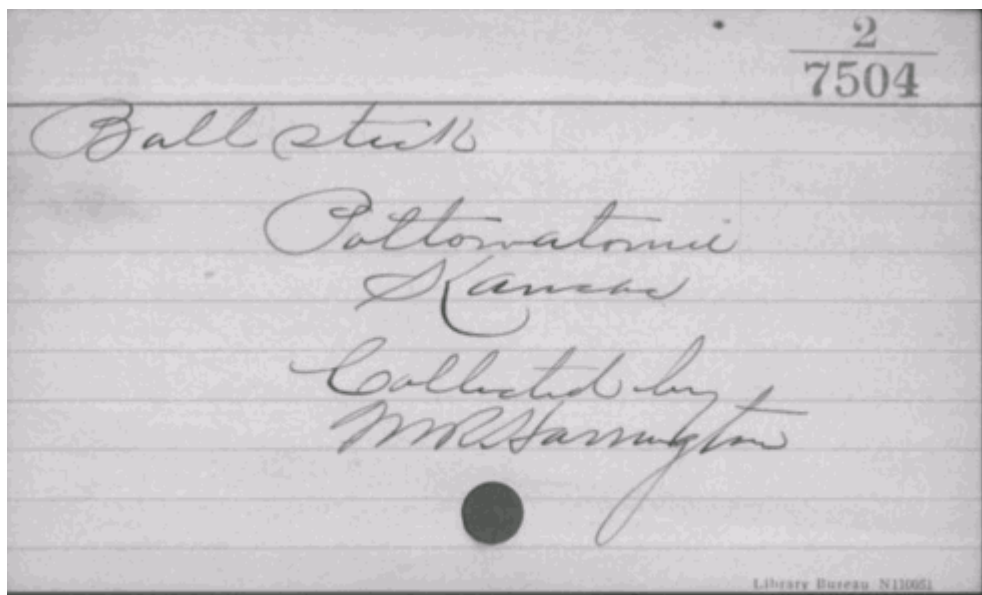 2
7504
Ball stick
Pottowatomie
Kansas
Collected by
M R Harrington
Library Bureau N110051